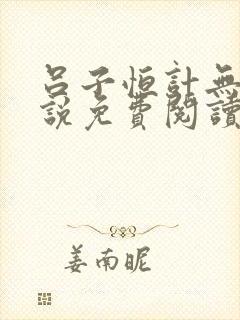 呂子恒計無
說免費閱讀
姜南昵